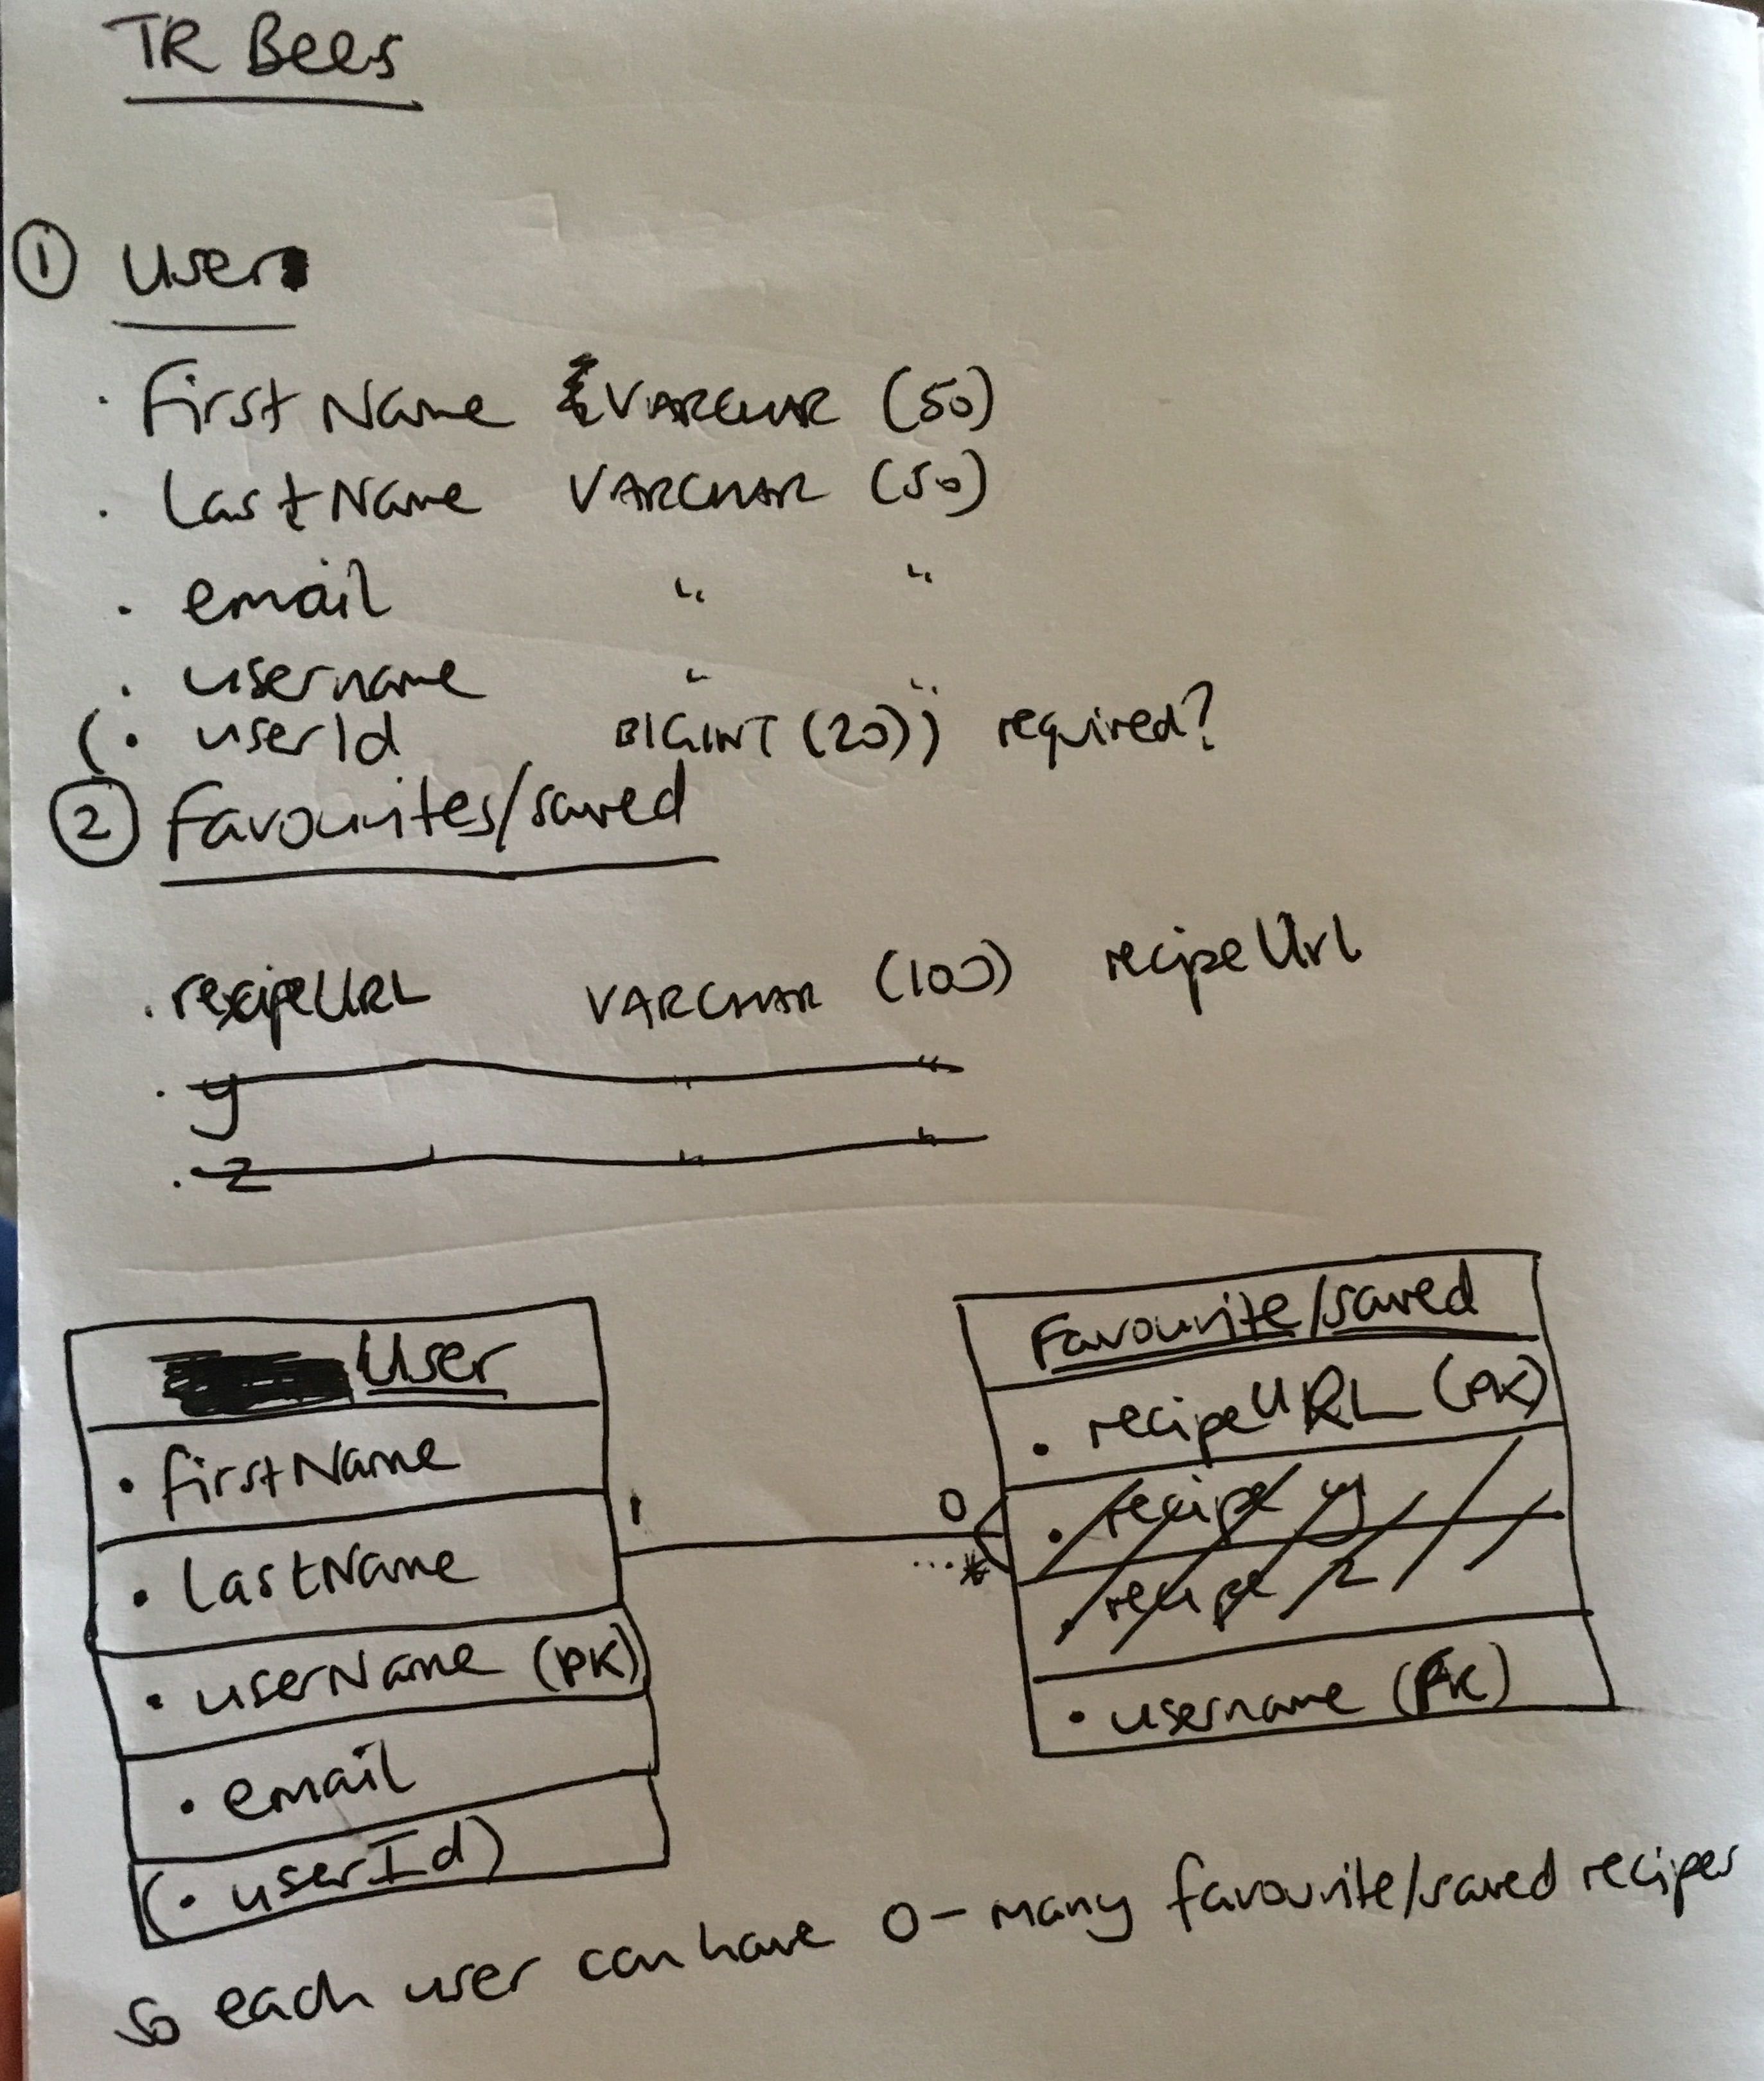 TR Bees
① User
· firstName VARCHAR (50)
· lastName VARCHAR (50)
· email " "
· username " "
(· userId BIGINT (20)) required?
② Favourites/saved
· recipeURL VARCHAR (100) recipeUrl
· y " "
· z " "
User
· firstName
· lastName
· userName (PK)
· email
(· userId)
1
0
...*
Favourite/saved
· recipeURL (PK)
· recipe y
· recipe z
· username (FK)
So each user can have 0-many favourite/saved recipes